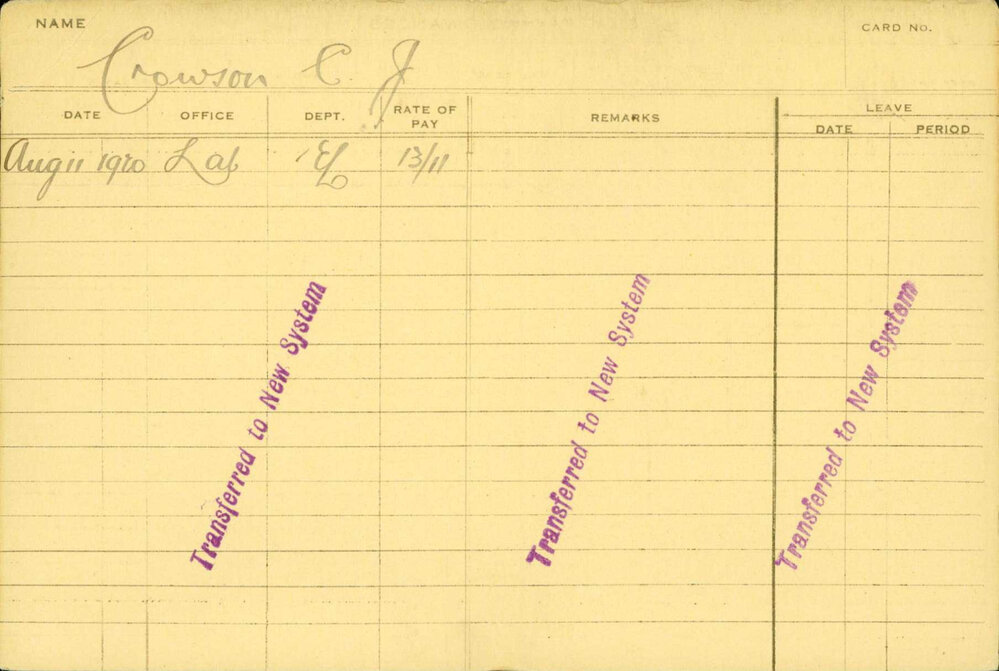 NAME
CARD No.
Crowson C. J
DATE OFFICE DEPT. RATE OF PAY REMARKS LEAVE
DATE PERIOD
Aug 11 1920 Lab EL 13/11
Transferred to New System
Transferred to New System
Transferred to New System